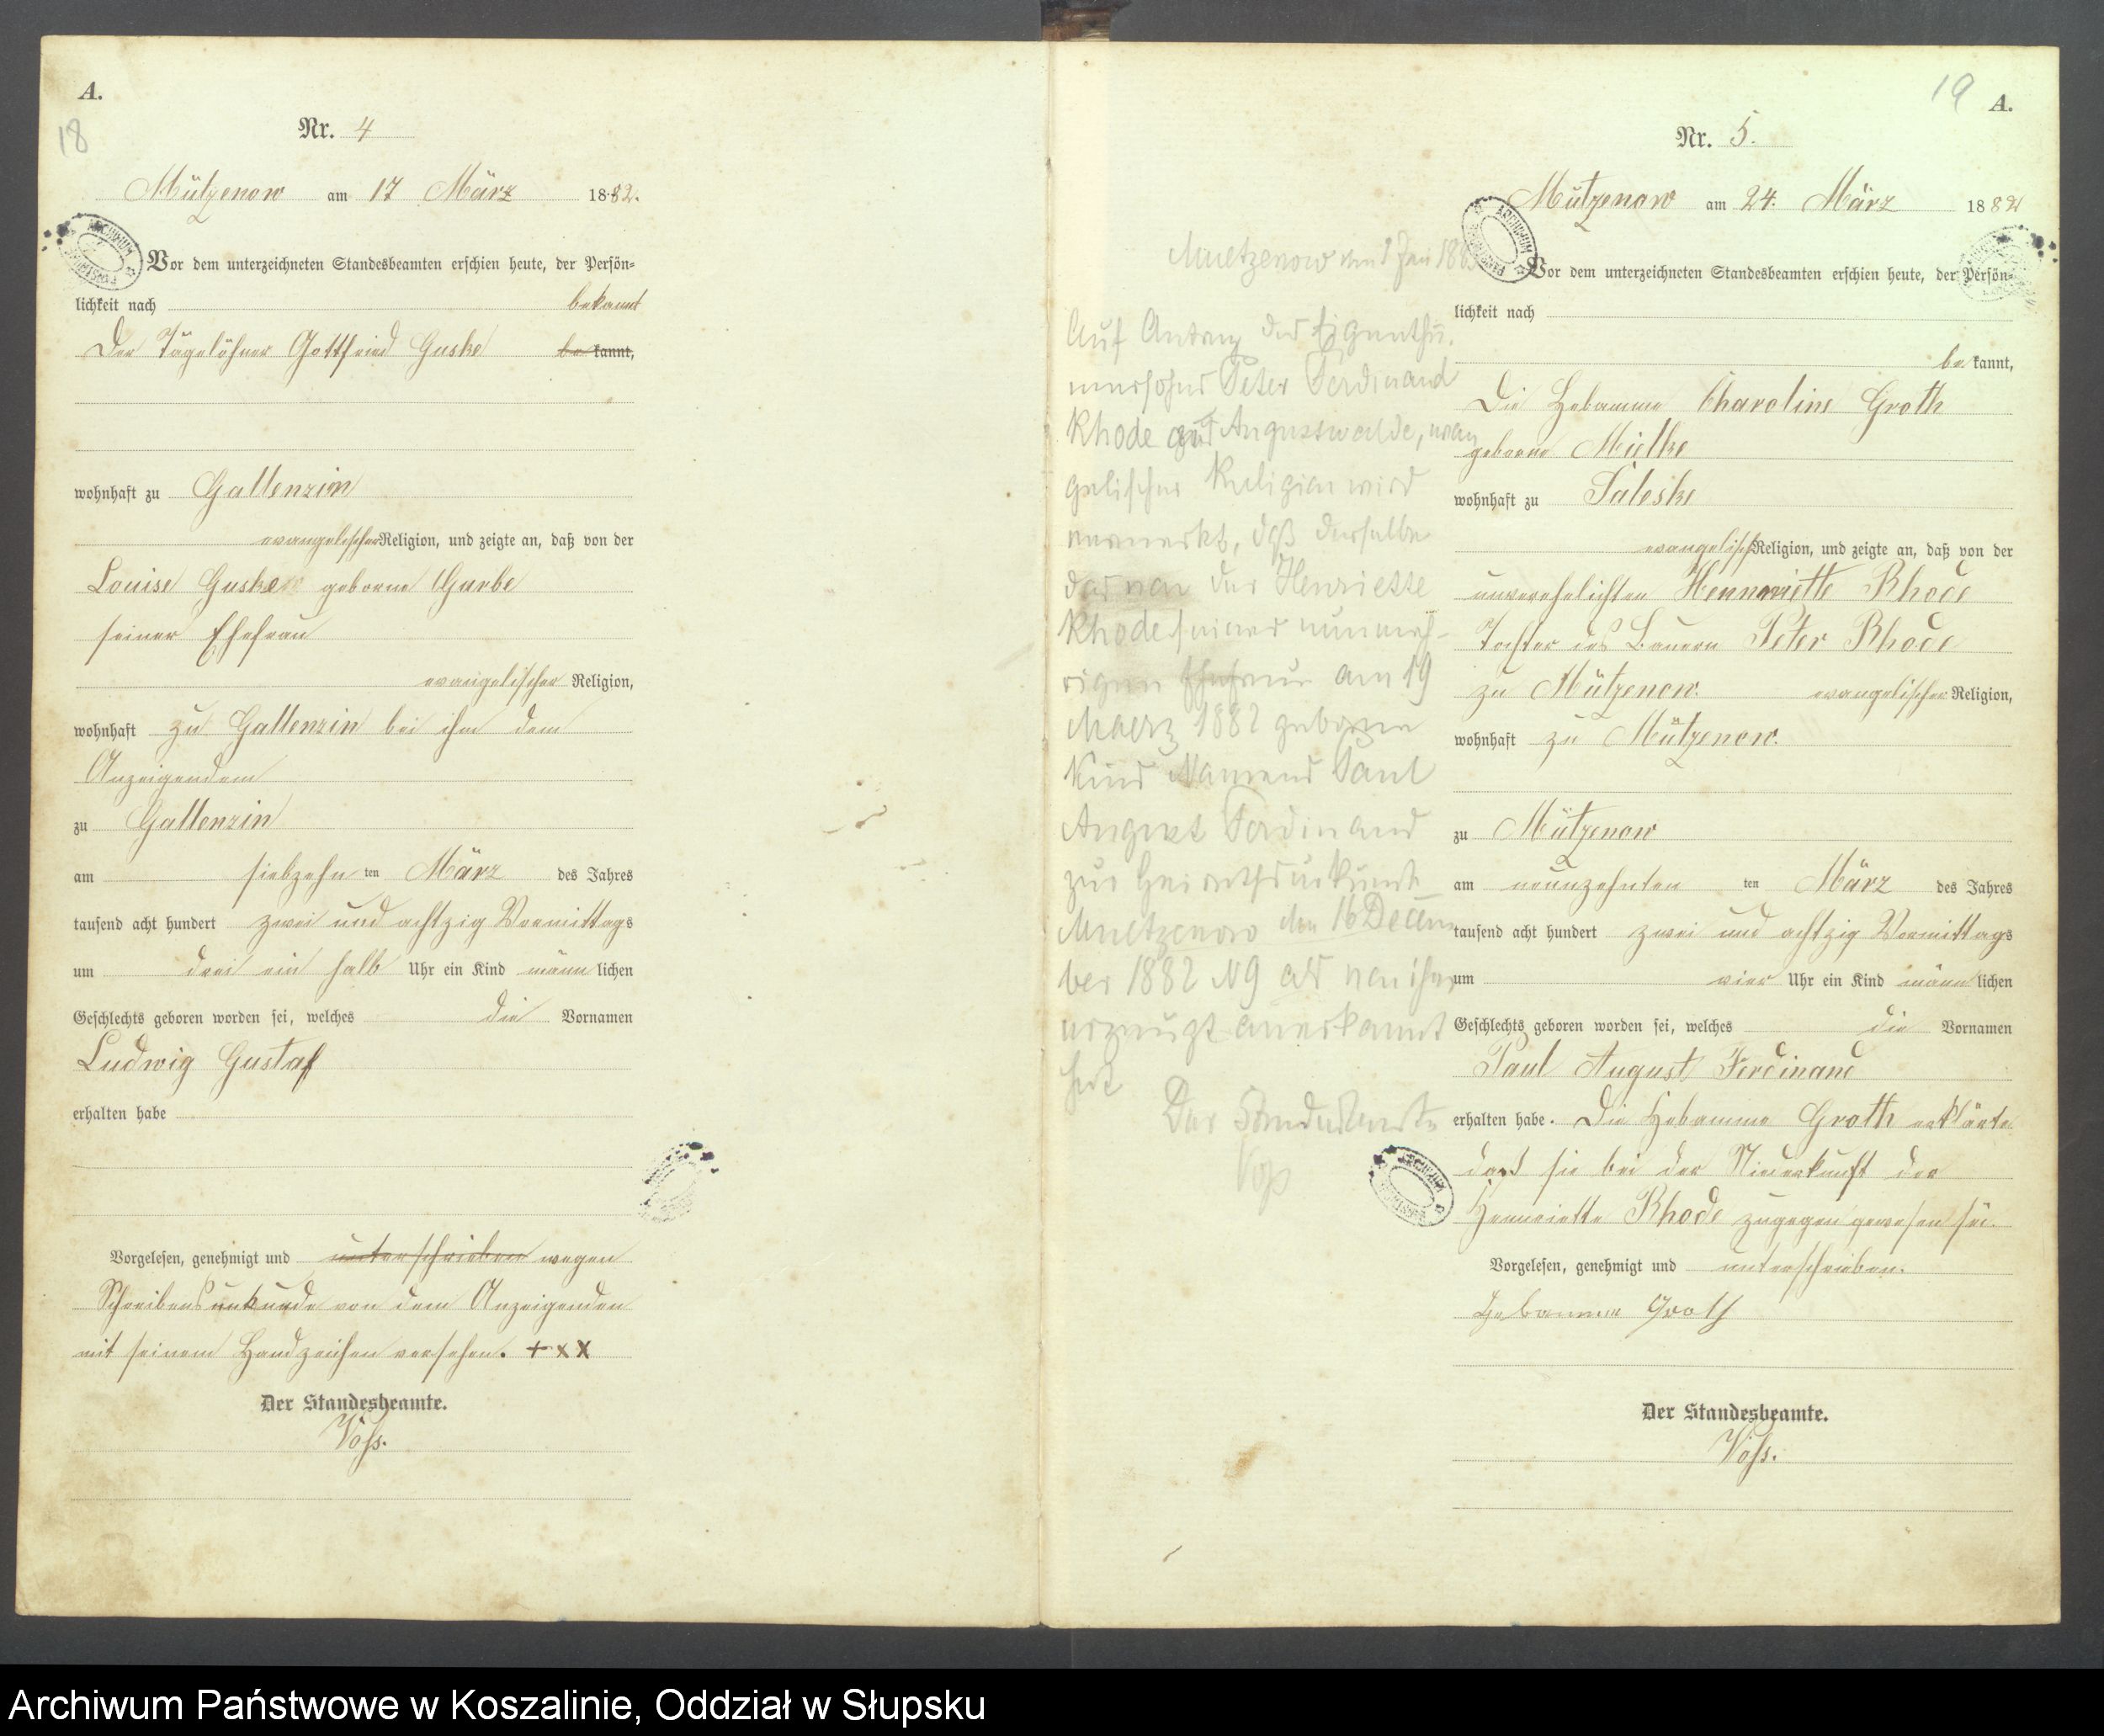 A.
18
Nr. 4
Mützenow am 17 März 1882.
Vor dem unterzeichneten Standesbeamten erschien heute, der Persön=
lichkeit nach bekannt
Der Tagelöhner Gottfried Guske be kannt,
wohnhaft zu Gallenzin
evangelischer Religion, und zeigte an, daß von der
Louise Guske geborne Garbe
seiner Ehefrau
evangelischer Religion,
wohnhaft zu Gallenzin bei ihm dem
Anzeigendem
zu Gallenzin
am siebzehn ten März des Jahres
tausend acht hundert zwei und achtzig Vormittags
um drei ein halb Uhr ein Kind männ lichen
Geschlechts geboren worden sei, welches die Vornamen
Ludwig Gustaf
erhalten habe
Vorgelesen, genehmigt und unterschrieben wegen
Schreibensunkunde von dem Anzeigenden
mit seinem Handzeichen versehen. + x x
Der Standesbeamte.
Voss.
Muetzenow den 1 Jan 1883
Auf Antrag des Eigenthü-
mersohns Peter Ferdinand
Rhode aus Augustwalde, evan
gelischer Religion wird
vermerkt, daß derselbe
das von der Henriette
Rhode seiner nunmeh-
rigen Ehefrau am 19
Maerz 1882 geborene
Kind Namens Paul
August Ferdinand
zur Heirathsurkunde
Muetzenow den 16 Decem
ber 1882 N 9 als von ihm
erzeugt anerkannt
hat
Der Standesbeamte
Voß
19
A.
Nr. 5.
Mützenow am 24. März 1882
Vor dem unterzeichneten Standesbeamten erschien heute, der Persön=
lichkeit nach
be kannt,
Die Hebamme Charoline Groth
geborne Mielke
wohnhaft zu Saleske
evangelisch Religion, und zeigte an, daß von der
unverehelichten Hennriette Rhode
Tochter des Bauern Peter Rhode
zu Mützenow. evangelischer Religion,
wohnhaft zu Mützenow.
zu Mützenow
am neunzehnten ten März des Jahres
tausend acht hundert zwei und achtzig Vormittags
um vier Uhr ein Kind männ lichen
Geschlechts geboren worden sei, welches die Vornamen
Paul August Ferdinand
erhalten habe. Die Hebamme Groth erklärte
daß sie bei der Niederkunft der
Hennriette Rhode zugegen gewesen sei.
Vorgelesen, genehmigt und unterschrieben.
Hebamme Groth
Der Standesbeamte.
Voss.
Archiwum Państwowe w Koszalinie, Oddział w Słupsku